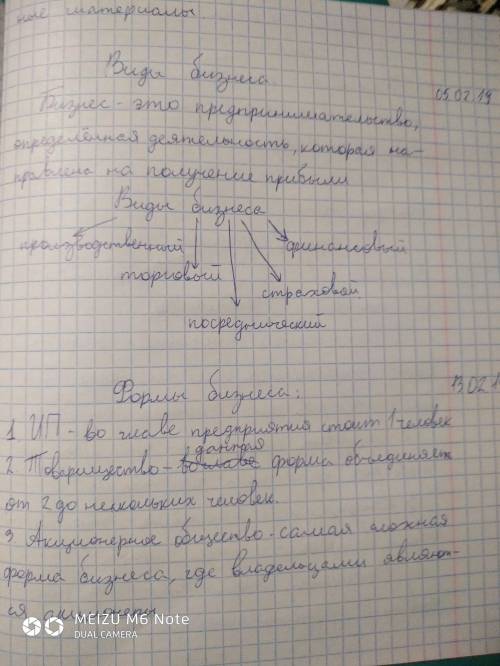 ные материалы
Виды бизнеса
05.02.19
Бизнес - это предпринимательство,
определённая деятельность, которая на-
правлена на получение прибыли
Виды бизнеса
производственный
финансовый
торговый
страховой
посреднический
Формы бизнеса:
13.02.1
1. ИП - во главе предприятия стоит 1 человек
данная
2. Товарищество - во главе форма объединяет
от 2 до нескольких человек.
3. Акционерное общество - самая сложная
форма бизнеса, где владельцами являют-
ся акционеры
MEIZU M6 Note
DUAL CAMERA